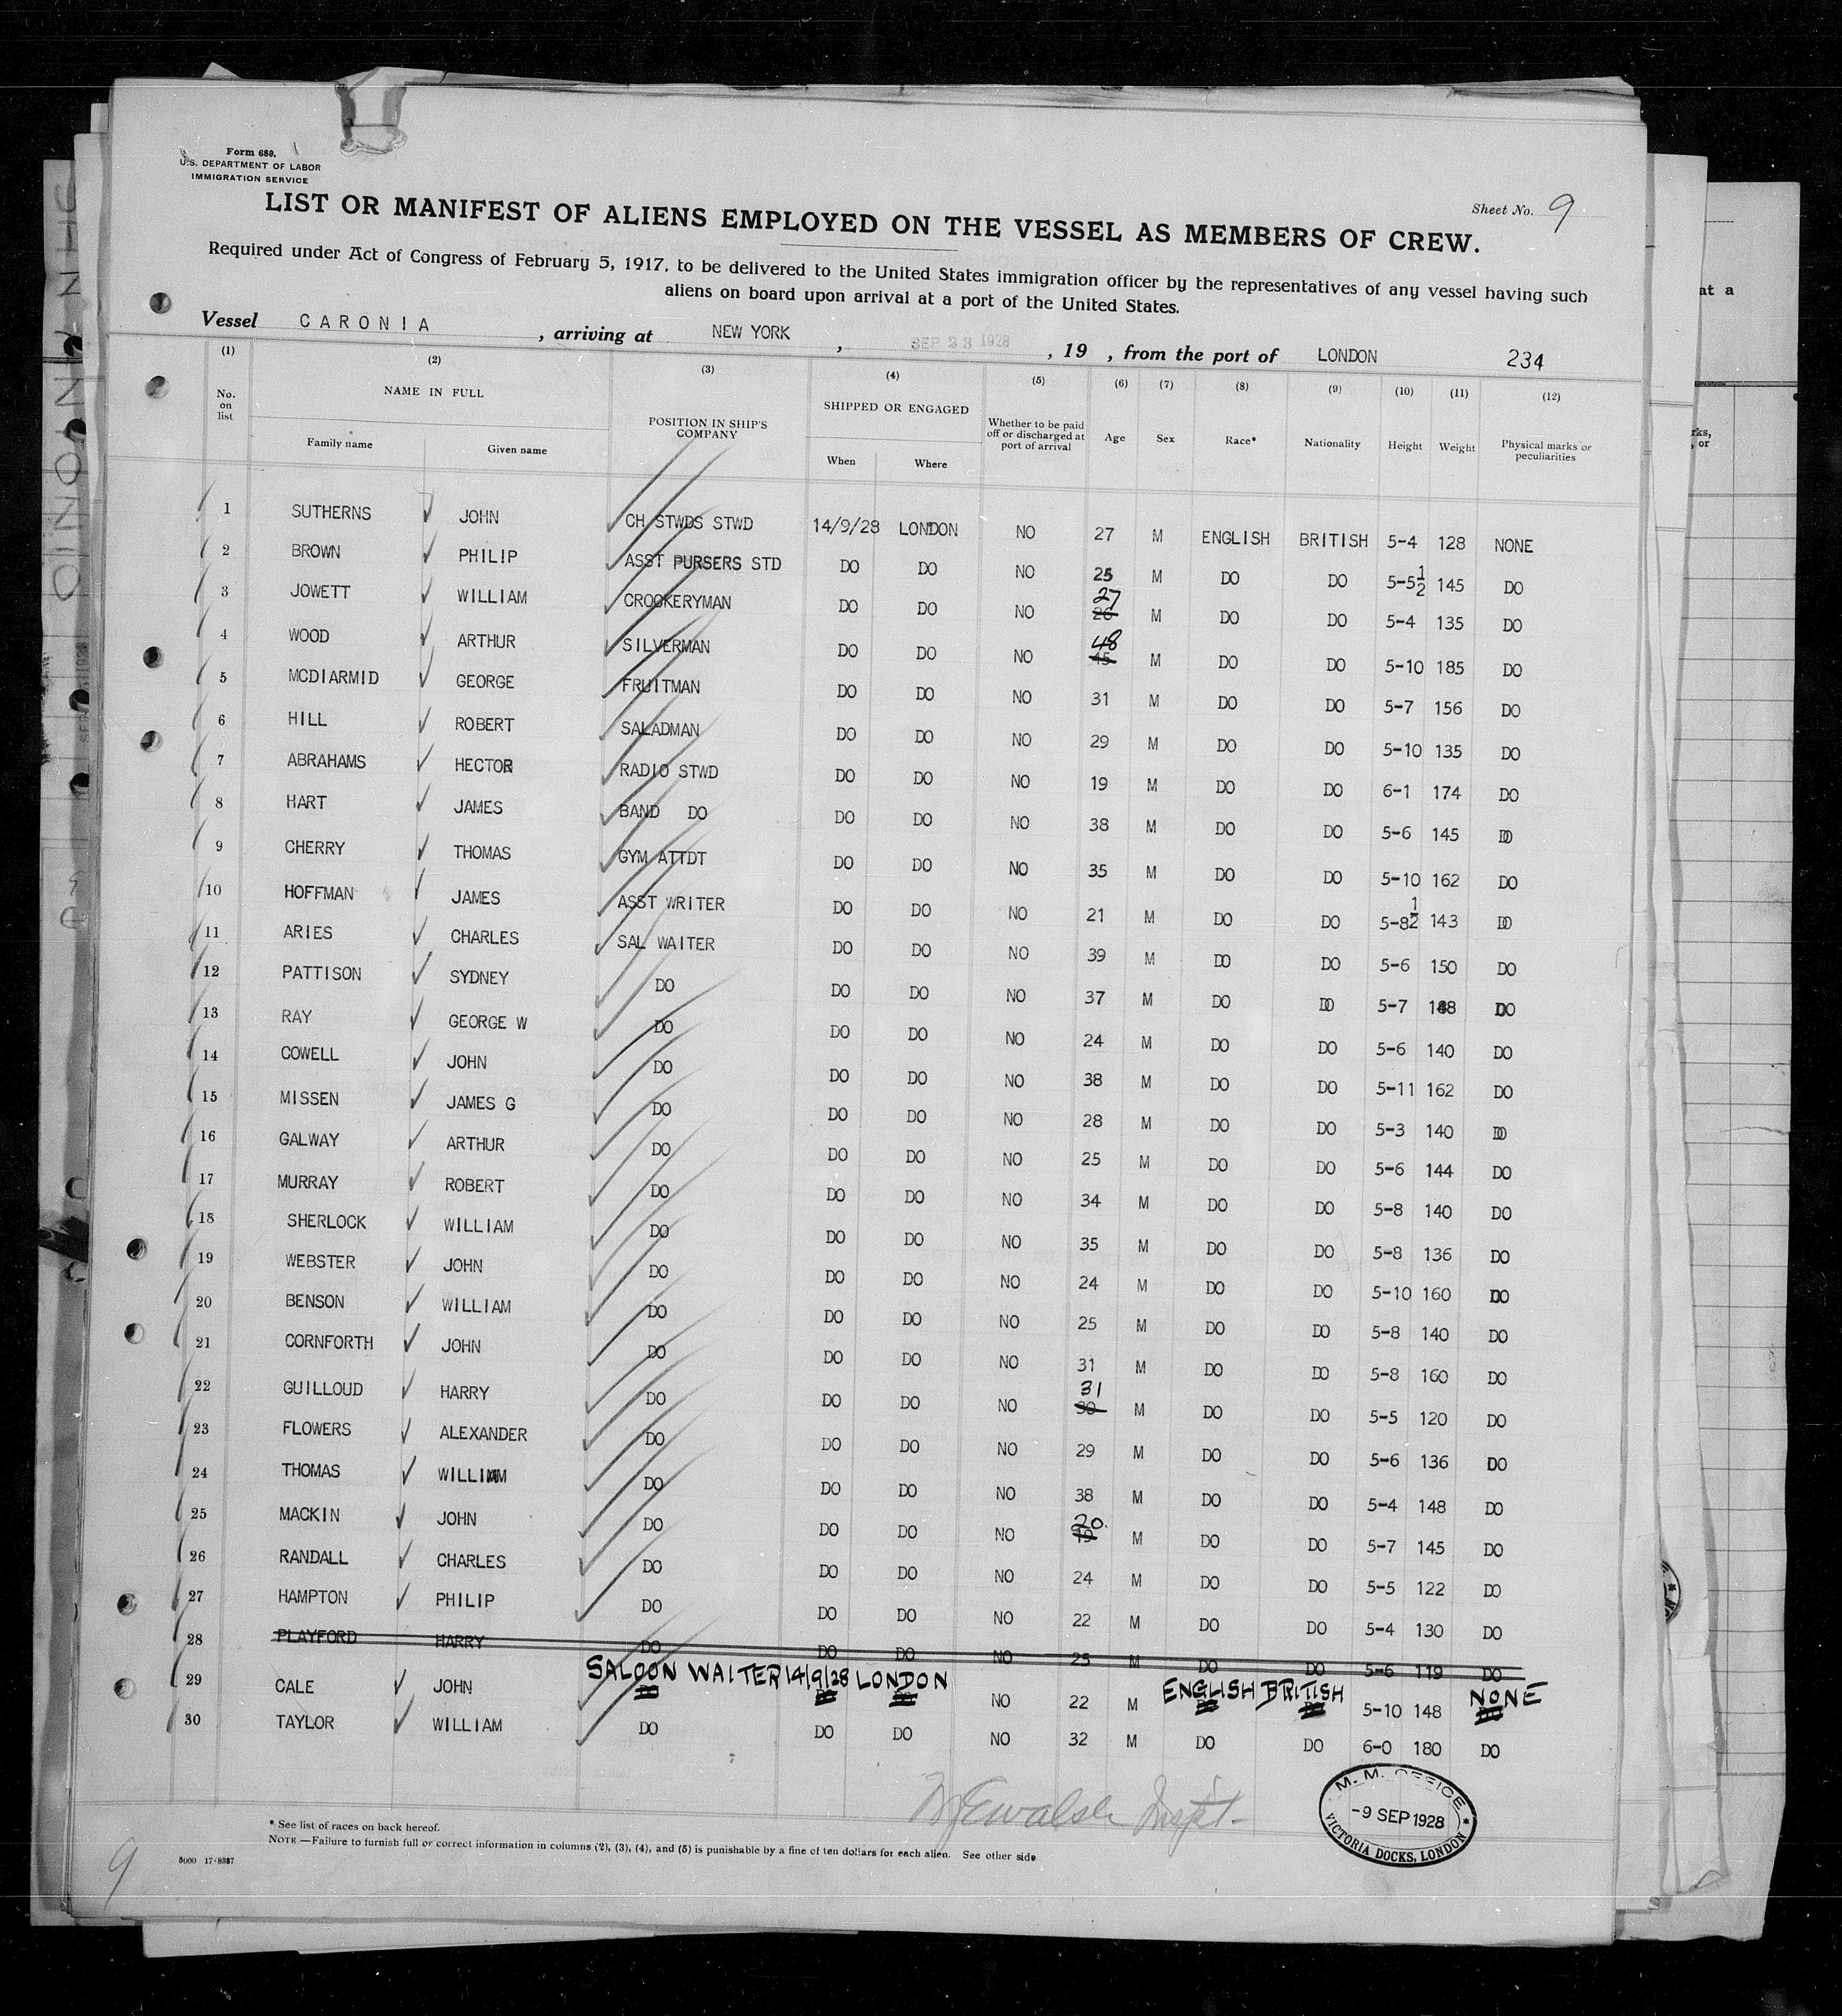 Form 680.
U.S. DEPARTMENT OF LABOR
IMMIGRATION SERVICE
Sheet No. 9
LIST OR MANIFEST OF ALIENS EMPLOYED ON THE VESSEL AS MEMBERS OF CREW.
Required under Act of Congress of February 5, 1917, to be delivered to the United States immigration officer by the representatives of any vessel having such
aliens on board upon arrival at a port of the United States.
Vessel CARONIA , arriving at NEW YORK , SEP 23 1928 , 19 , from the port of LONDON 234
(1) (2) (3) (4) (5) (6) (7) (8) (9) (10) (11) (12)
No. on list NAME IN FULL Family name Given name POSITION IN SHIP'S COMPANY SHIPPED OR ENGAGED When Where Whether to be paid off or discharged at port of arrival Age Sex Race* Nationality Height Weight Physical marks or peculiarities
1 SUTHERNS JOHN CH STWDS STWD 14/9/28 LONDON NO 27 M ENGLISH BRITISH 5-4 128 NONE
2 BROWN PHILIP ASST PURSERS STD DO DO NO 25 M DO DO 5-5½ 145 DO
3 JOWETT WILLIAM CROCKERYMAN DO DO NO 27 26 M DO DO 5-4 135 DO
4 WOOD ARTHUR SILVERMAN DO DO NO 48 45 M DO DO 5-10 185 DO
5 MCDIARMID GEORGE FRUITMAN DO DO NO 31 M DO DO 5-7 156 DO
6 HILL ROBERT SALADMAN DO DO NO 29 M DO DO 5-10 135 DO
7 ABRAHAMS HECTOR RADIO STWD DO DO NO 19 M DO DO 6-1 174 DO
8 HART JAMES BAND DO DO DO NO 38 M DO DO 5-6 145 DO
9 CHERRY THOMAS GYM ATTDT DO DO NO 35 M DO DO 5-10 162 DO
10 HOFFMAN JAMES ASST WRITER DO DO NO 21 M DO DO 5-8½ 143 DO
11 ARIES CHARLES SAL WAITER DO DO NO 39 M DO DO 5-6 150 DO
12 PATTISON SYDNEY DO DO DO NO 37 M DO DO 5-7 148 DO
13 RAY GEORGE W DO DO DO NO 24 M DO DO 5-6 140 DO
14 COWELL JOHN DO DO DO NO 38 M DO DO 5-11 162 DO
15 MISSEN JAMES G DO DO DO NO 28 M DO DO 5-3 140 DO
16 GALWAY ARTHUR DO DO DO NO 25 M DO DO 5-6 144 DO
17 MURRAY ROBERT DO DO DO NO 34 M DO DO 5-8 140 DO
18 SHERLOCK WILLIAM DO DO DO NO 35 M DO DO 5-8 136 DO
19 WEBSTER JOHN DO DO DO NO 24 M DO DO 5-10 160 DO
20 BENSON WILLIAM DO DO DO NO 25 M DO DO 5-8 140 DO
21 CORNFORTH JOHN DO DO DO NO 31 M DO DO 5-8 160 DO
22 GUILLOUD HARRY DO DO DO NO 31 30 M DO DO 5-5 120 DO
23 FLOWERS ALEXANDER DO DO DO NO 29 M DO DO 5-6 136 DO
24 THOMAS WILLIAM DO DO DO NO 38 M DO DO 5-4 148 DO
25 MACKIN JOHN DO DO DO NO 20. 19 M DO DO 5-7 145 DO
26 RANDALL CHARLES DO DO DO NO 24 M DO DO 5-5 122 DO
27 HAMPTON PHILIP DO DO DO NO 22 M DO DO 5-4 130 DO
28 PLAYFORD HARRY DO DO DO NO 25 M DO DO 5-6 119 DO
29 CALE JOHN SALOON WAITER 14/9/28 LONDON NO 22 M ENGLISH BRITISH 5-10 148 NONE
30 TAYLOR WILLIAM DO DO DO NO 32 M DO DO 6-0 180 DO
M. M. OFFICE
-9 SEP 1928
VICTORIA DOCKS, LONDON
* See list of races on back hereof.
NOTE.—Failure to furnish full or correct information in columns (2), (3), (4), and (5) is punishable by a fine of ten dollars for each alien. See other side
9